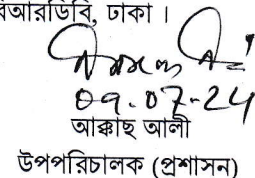 বিআরডিবি, ঢাকা ।
০৭.০৭-২৪
আক্কাছ আলী
উপপরিচালক (প্রশাসন)